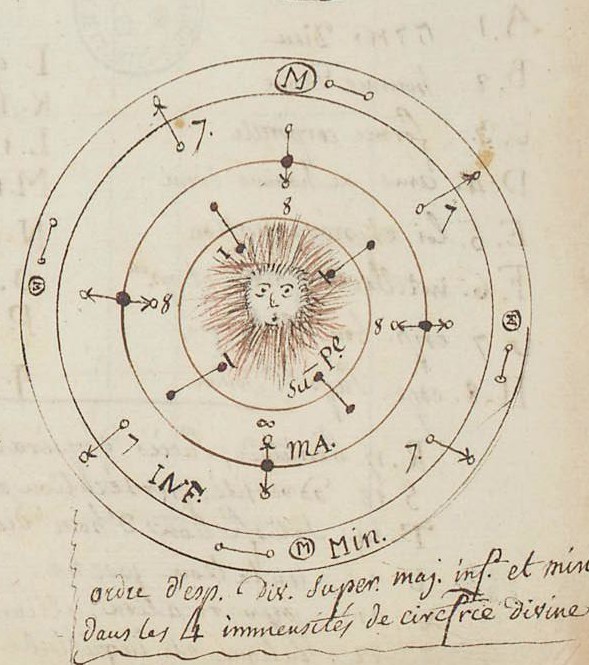 M
7.
8
7
8
1
1
M
8
M
8
1
su͞pe
8
mA.
7
7.
INF.
M Min.
ordre d'esp. Div. super. maj. inf. et min
dans les 4 immensités de circfrce divine